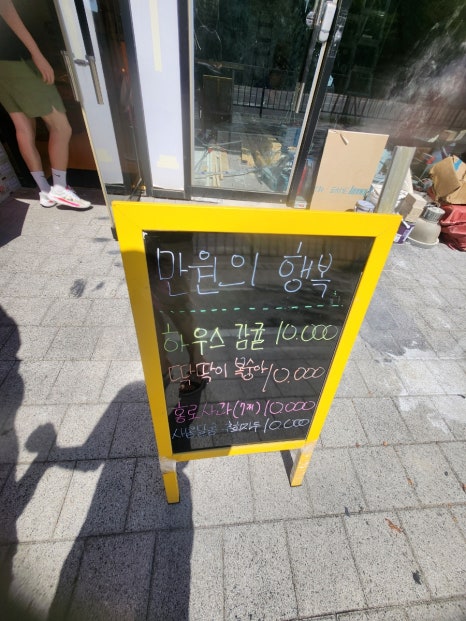 만원의 행복
하우스 감귤 10.000
딱딱이 복숭아 10.000
홍로사과(7개) 10.000
10.000